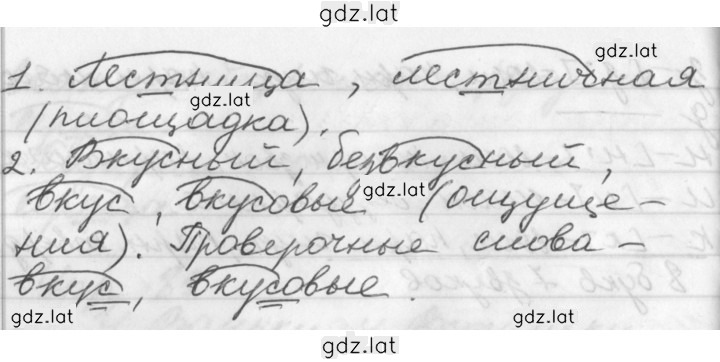 gdz.lat
gdz.lat
1. Лестница, лестничная
gdz.lat
(площадка).
2. Вкусный, безвкусный,
gdz.lat
вкус, вкусовые (ощуще-
ния). Проверочные слова -
вкус, вкусовые.
gdz.lat gdz.lat
gdz.lat